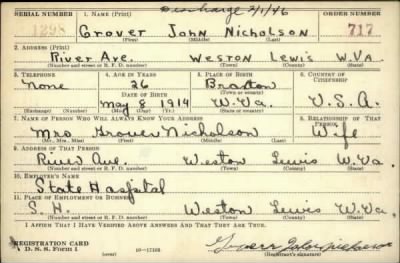 Discharge 2/1/46
SERIAL NUMBER 1. NAME (Print) ORDER NUMBER
1298 Grover John Nicholson 717
(First) (Middle) (Last)
2. ADDRESS (Print)
River Ave. Weston Lewis W.Va.
(Number and street or R. F. D. number) (Town) (County) (State)
3. TELEPHONE 4. AGE IN YEARS 5. PLACE OF BIRTH 6. COUNTRY OF CITIZENSHIP
None 26 Braxton
DATE OF BIRTH (Town or county)
May 8 1914 W.Va. U.S.A.
(Exchange) (Number) (Mo.) (Day) (Yr.) (State or country)
7. NAME OF PERSON WHO WILL ALWAYS KNOW YOUR ADDRESS 8. RELATIONSHIP OF THAT PERSON
Mrs Grover Nicholson Wife
(Mr., Mrs., Miss) (First) (Middle) (Last)
9. ADDRESS OF THAT PERSON
River Ave. Weston Lewis W.Va.
(Number and street or R. F. D. number) (Town) (County) (State)
10. EMPLOYER'S NAME
State Hospital
11. PLACE OF EMPLOYMENT OR BUSINESS
S. H. Weston Lewis W.Va.
(Number and street or R. F. D. number) (Town) (County) (State)
I AFFIRM THAT I HAVE VERIFIED ABOVE ANSWERS AND THAT THEY ARE TRUE.
REGISTRATION CARD
D. S. S. Form 1 16—17105 Grover John Nicholson
(over) (Registrant's signature)